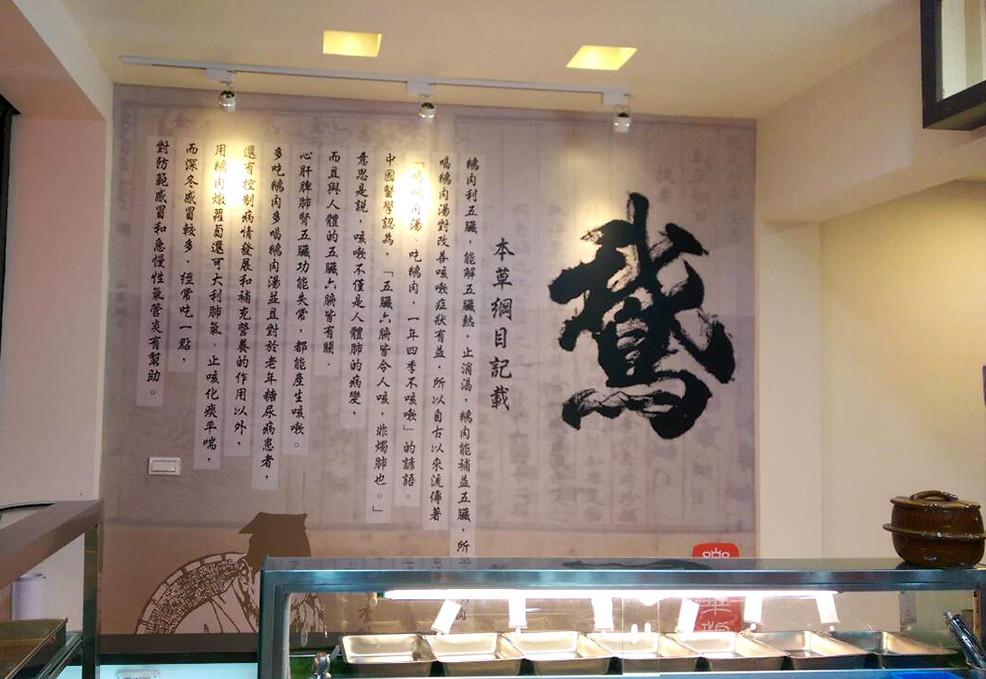 鵞
本草綱目記載
鵝肉利五臟，能解五臟熱，止消渴，鵝肉能補益五臟，所
喝鵝肉湯對改善咳嗽症狀有益，所以自古以來流傳著
「喝鵝肉湯、吃鵝肉，一年四季不咳嗽」的諺語。
中國醫學認為，「五臟六腑皆令人咳，非獨肺也。」
意思是說，咳嗽不僅是人體肺的病變，
而且與人體的五臟六腑皆有關、
心肝脾肺腎五臟功能失常，都能產生咳嗽。
多吃鵝肉多喝鵝肉湯並且對於老年糖尿病患者，
還有控制病情發展和補充營養的作用以外，
用鵝肉燉蘿蔔還可大利肺氣、止咳化痰平喘，
而深冬感冒較多，經常吃一點，
對防範感冒和急慢性氣管炎有幫助。